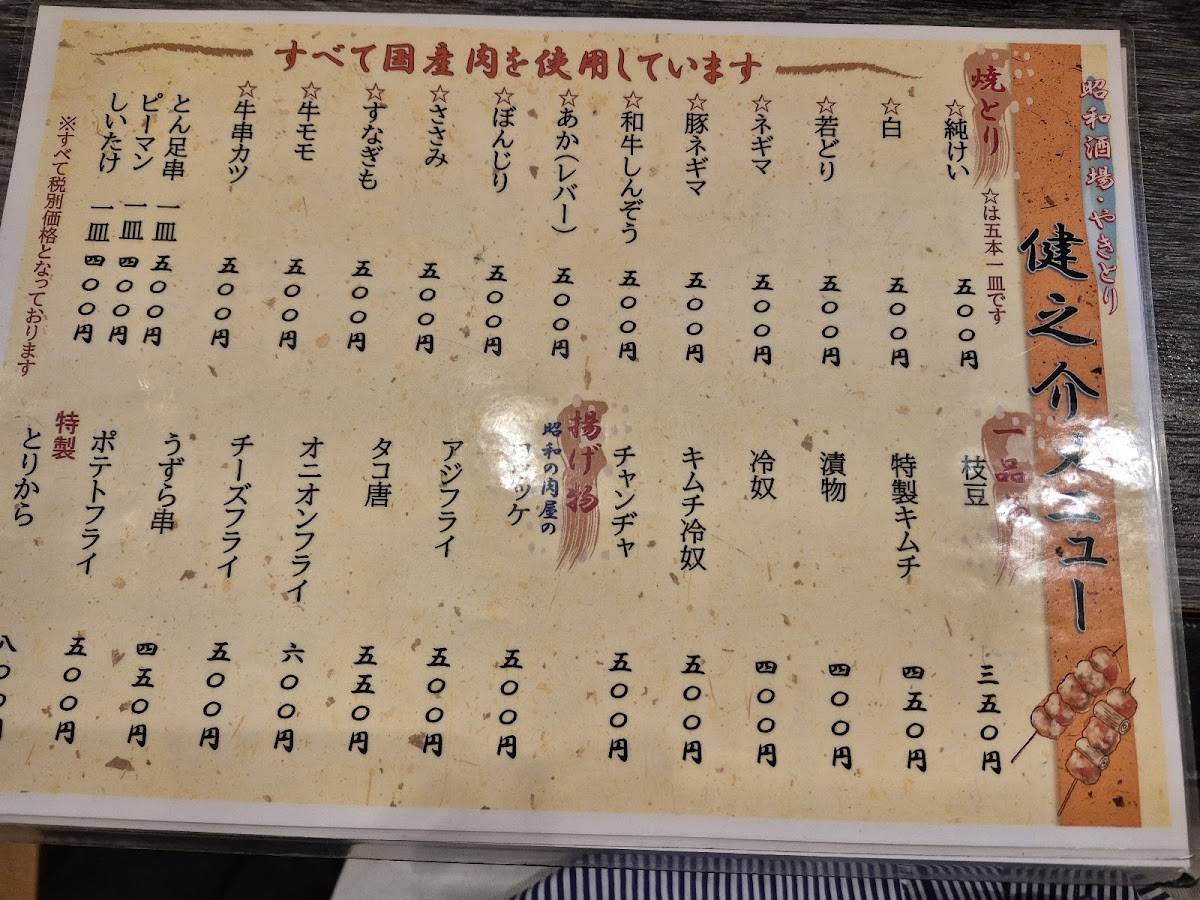 昭和酒場・やきとり
健之介メニュー
すべて国産肉を使用しています
焼とり
☆は五本一皿です
☆純けい 五〇〇円
☆白 五〇〇円
☆若どり 五〇〇円
☆ネギマ 五〇〇円
☆豚ネギマ 五〇〇円
☆和牛しんぞう 五〇〇円
☆あか（レバー） 五〇〇円
☆ぼんじり 五〇〇円
☆ささみ 五〇〇円
☆すなぎも 五〇〇円
☆牛モモ 五〇〇円
☆牛串カツ 五〇〇円
とん足串 一皿 五〇〇円
ピーマン 一皿 四〇〇円
しいたけ 一皿 四〇〇円
※すべて税別価格となっております
一品
枝豆 三五〇円
特製キムチ 四五〇円
漬物 四〇〇円
冷奴 四〇〇円
キムチ冷奴 五〇〇円
チャンヂャ 五〇〇円
揚げ物
昭和の肉屋の
コロッケ 五〇〇円
アジフライ 五〇〇円
タコ唐 五五〇円
オニオンフライ 六〇〇円
チーズフライ 五〇〇円
うずら串 四五〇円
ポテトフライ 五〇〇円
特製
とりから 八〇〇円